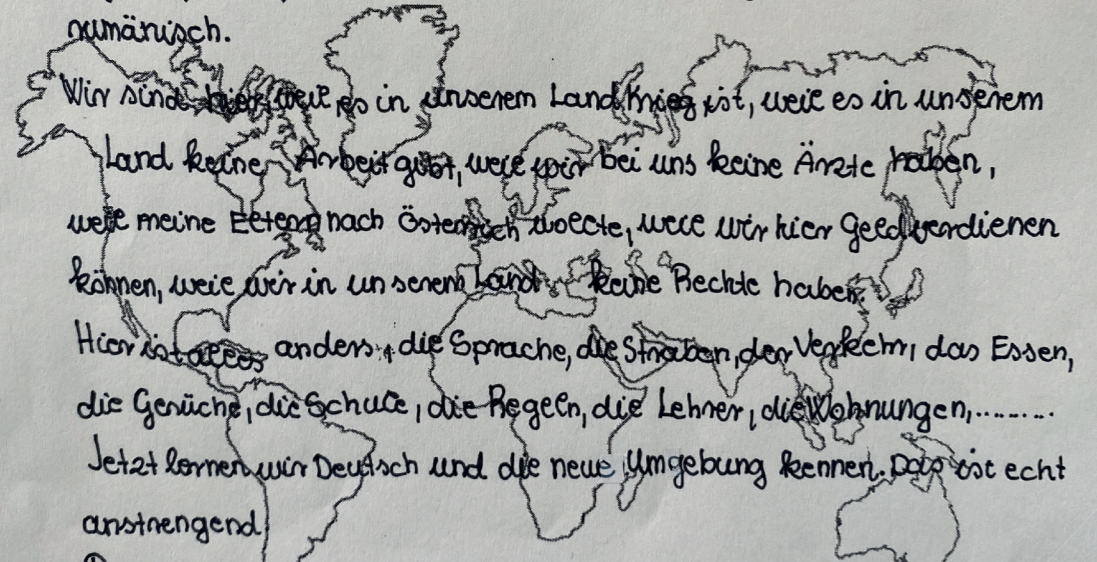 rumänisch.
Wir sind hier, weil es in unserem Land Krieg ist, weil es in unserem
Land keine Arbeit gibt, weil wir bei uns keine Ärzte haben,
weil meine Eltern nach Österreich wollte, weil wir hier Geld verdienen
können, weil wir in unserem Land keine Rechte haben.
Hier ist alles anders, die Sprache, die Straßen, der Verkehr, das Essen,
die Gerüche, die Schule, die Regeln, die Lehrer, die Wohnungen,.........
Jetzt lernen wir Deutsch und die neue Umgebung kennen. Das ist echt
anstrengend